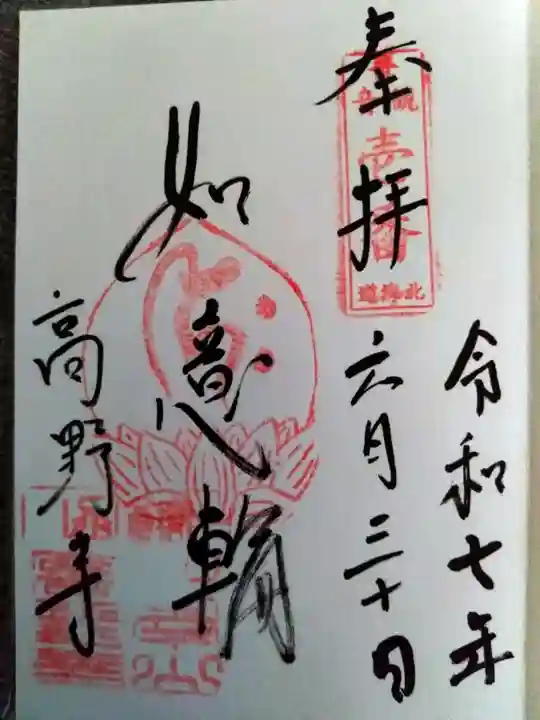 奉拝
令和七年
六月三十日
如意輪
高野寺
壱番
北海道